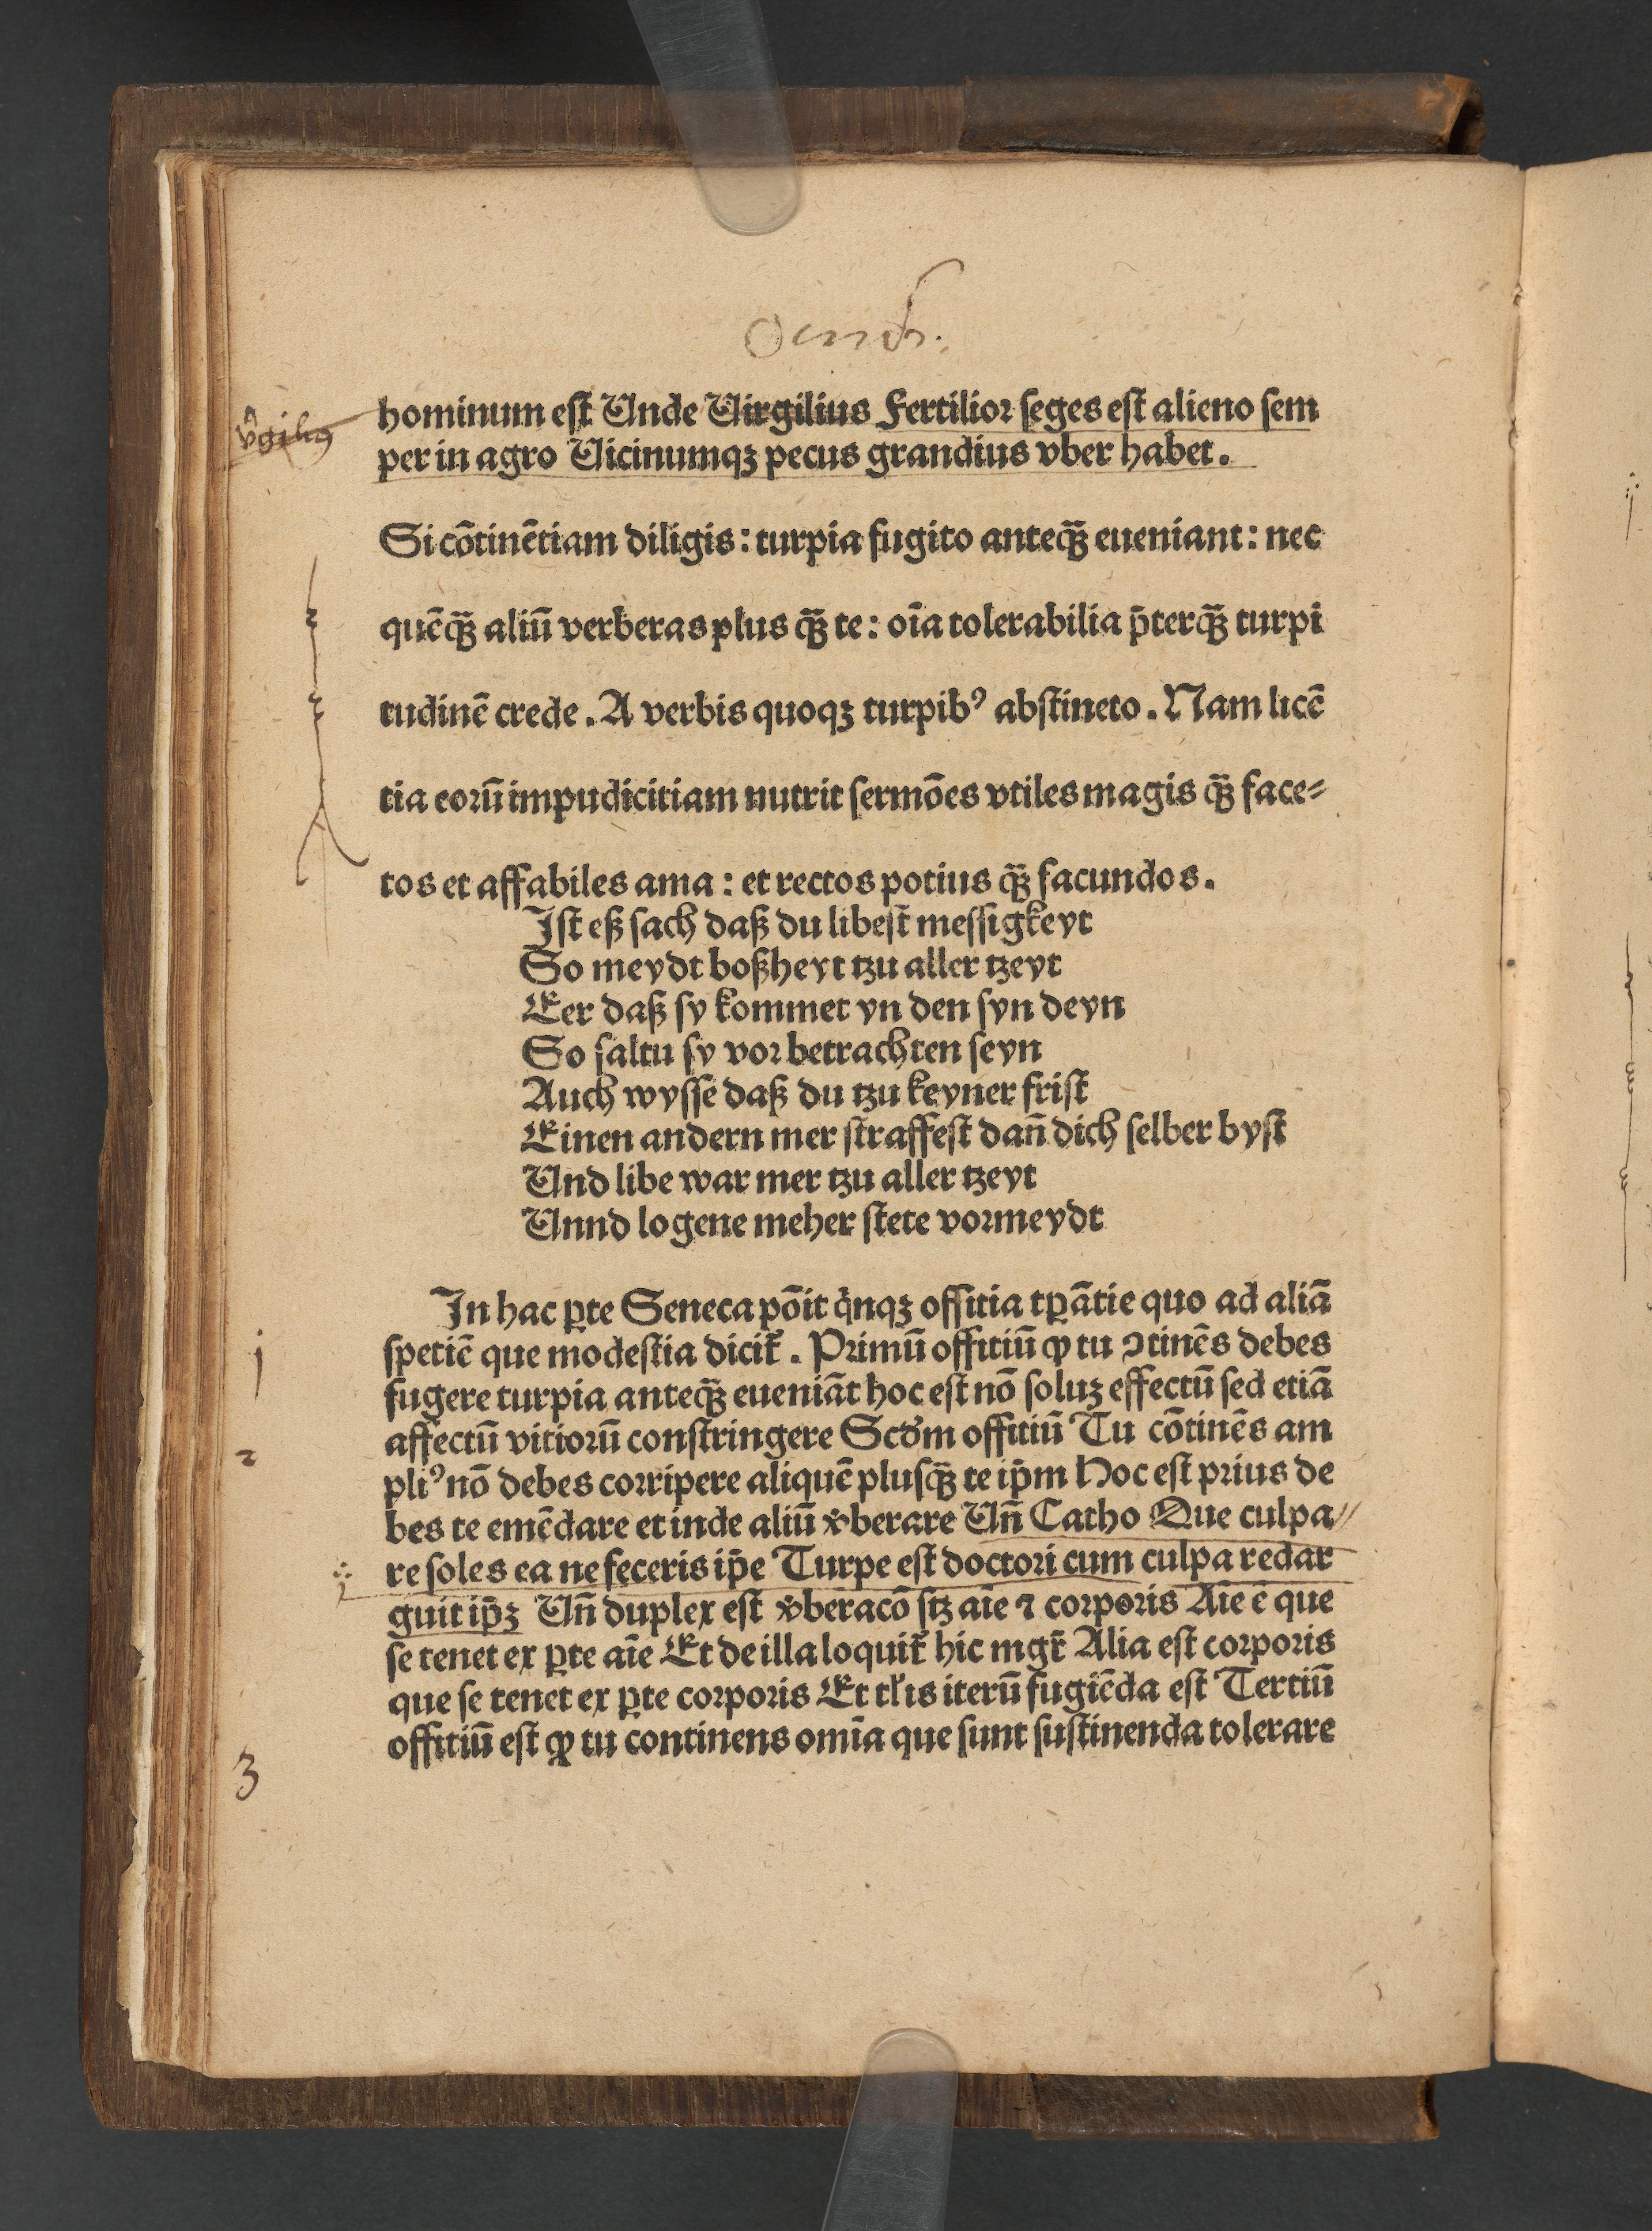 v̂gilius
hominum eſt Unde Uirgilius Fertilior ſeges eſt alieno ſem
per in agro Uicinumqꝫ pecus grandius vber habet.
Si cōtinētiam diligis: turpia fugito anteqꝫ̄ eueniant: nec
quēqꝫ̄ aliū verberas plus qꝫ̄ te: oīa tolerabilia p̄terqꝫ̄ turpi
tudinē crede. A verbis quoqꝫ turpibꝰ abſtineto. Nam licē
tia eorū impudicitiam nutrit ſermōes vtiles magis qꝫ̄ face⸗
tos et affabiles ama: et rectos potius qꝫ̄ facundos.
Iſt eß ſach daß du libeſt meſſigkeyt
So meydt boßheyt tzu aller tzeyt
Eer daß ſy kommet yn den ſyn deyn
So ſaltu ſy vor betrachten ſeyn
Auch wyſſe daß du tzu keyner friſt
Einen andern mer ſtraffeſt dañ dich ſelber byſt
Und libe war mer tzu aller tzeyt
Unnd logene meher ſtete vormeydt
In hac ꝑte Seneca pōit q̇nqꝫ offitia tꝑātie quo ad aliā
j
ſpetiē que modeſtia dicit᷑. Primū offitiū ꝙ tu ꝯtinēs debes
fugere turpia anteqꝫ̄ eueniāt hoc eſt nō ſoluꝫ effectū ſed etiā
affectū vitiorū conſtringere Scd̓m offitiū Tu cōtinēs am
2
pliꝰ nō debes corripere aliquē plusqꝫ̄ te ip̄m Hoc eſt prius de
bes te emēdare et inde aliū v̓berare Un̄ Catho Que culpa
re ſoles ea ne feceris ip̄e Turpe eſt doctori cum culpa redar
guit ip̄ꝫ Un̄ duplex eſt v̓beracō ſꝫ aīe ⁊ corporis Aīe ē que
ſe tenet ex ꝑte aīe Et de illa loquit᷑ hic mgr̄ Alia eſt corporis
que ſe tenet ex ꝑte corporis Et tl̓is iterū fugiēda eſt Tertiū
offitiū eſt ꝙ tu continens omīa que ſunt ſuſtinenda tolerare
3